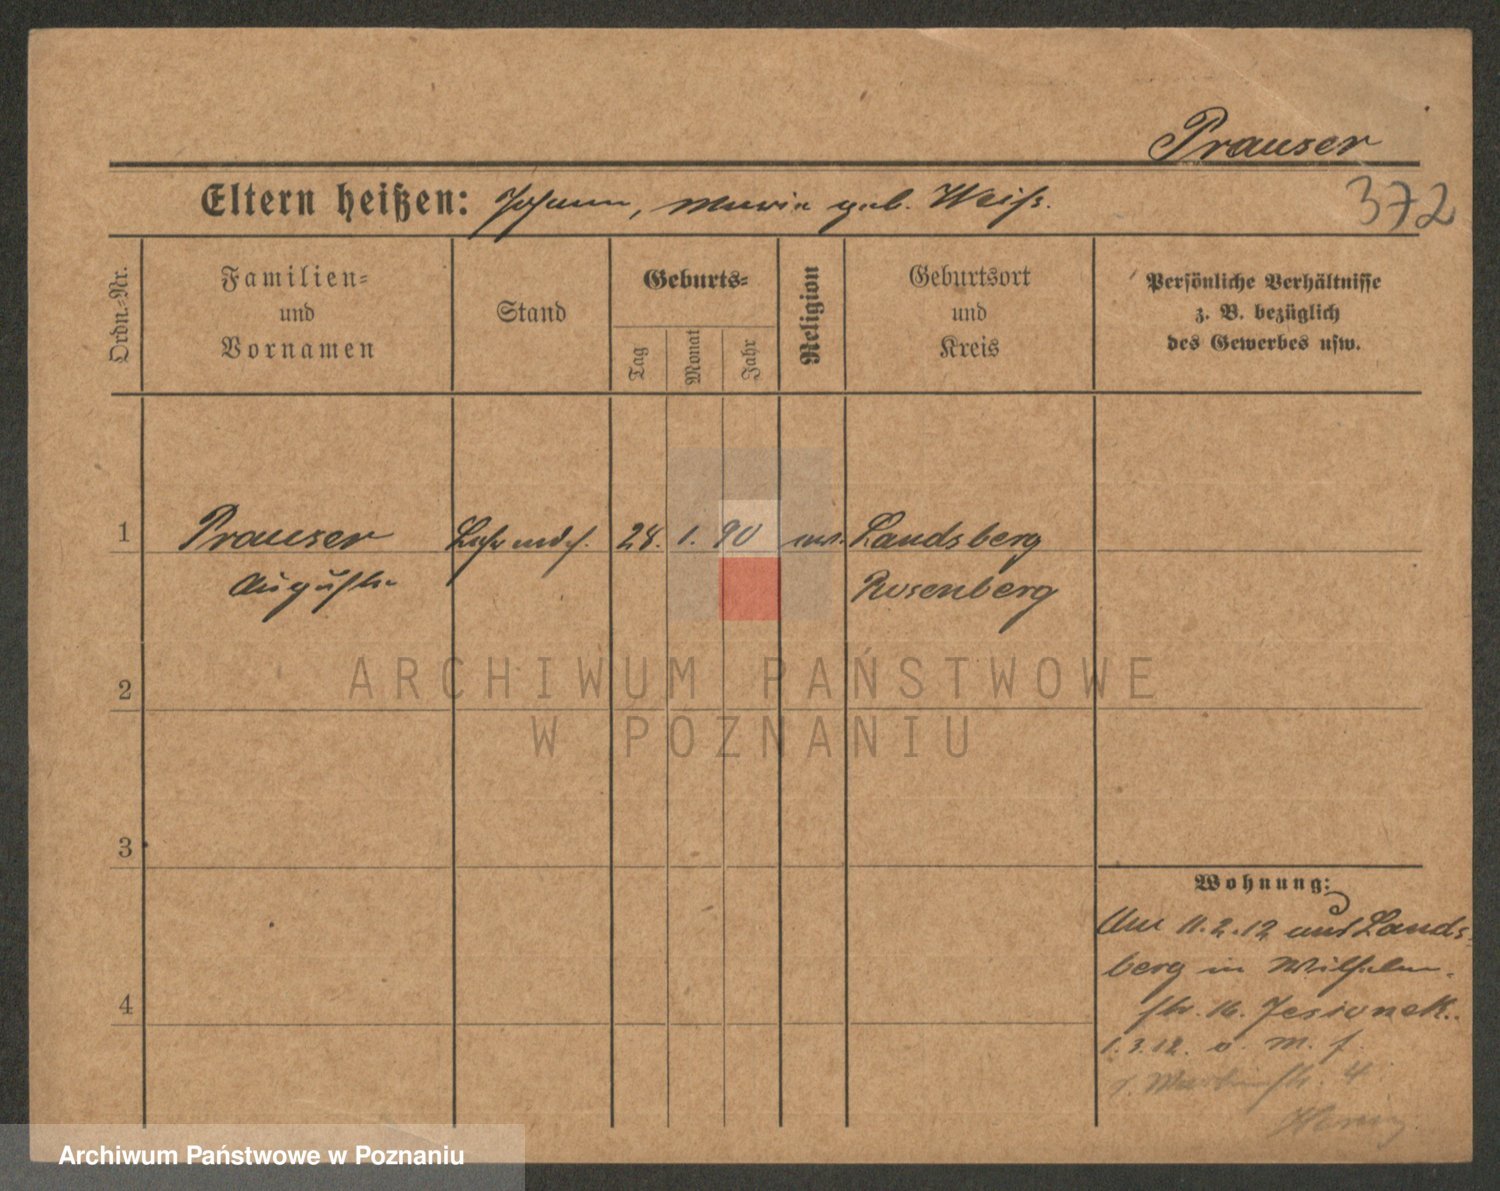 Prauser
Eltern heißen: Johann, Maria geb. Weiß.
372
Ordn.=Nr.
Familien=
und
Vornamen
Stand
Geburts=
Tag
Monat
Jahr
Religion
Geburtsort
und
Kreis
Persönliche Verhältnisse
z. B. bezüglich
des Gewerbes usw.
1
Prauser
Auguste
28. 1. 90
Landsberg
Rosenberg
2
ARCHIWUM PAŃSTWOWE
W POZNANIU
3
Wohnung:
Am 11.2.12 aus Lands-
berg in Wilhelm-
str. 16. Jesionek.
1.3.12. o. m. f.
4
Archiwum Państwowe w Poznaniu